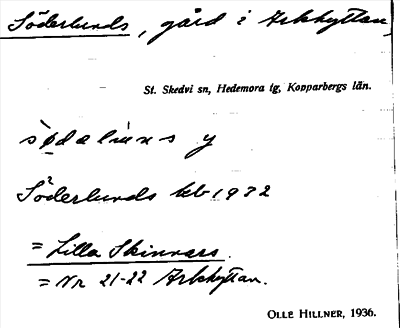 Söderlunds, gård i Arkhyttan,
St. Skedvi sn, Hedemora tg, Kopparbergs län.
sødaluns y
Söderlunds kb 1932
= Lilla Skinnars.
= Nr 21-22 Arkhyttan.
OLLE HILLNER, 1936.